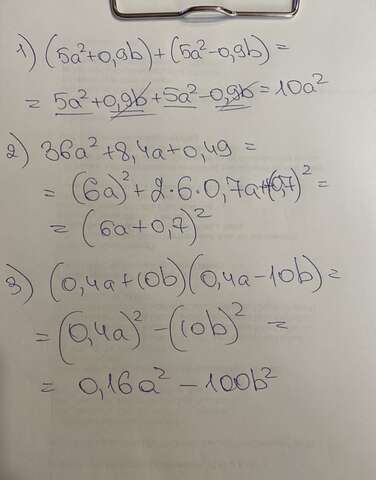 1) (5a²+0,9b)+(5a²-0,9b)=
= 5a²+0,9b+5a²-0,9b=10a²
2) 36a²+8,4a+0,49=
= (6a)²+2·6·0,7a+(0,7)²=
= (6a+0,7)²
3) (0,4a+10b)(0,4a-10b)=
= (0,4a)²-(10b)² =
= 0,16a²-100b²